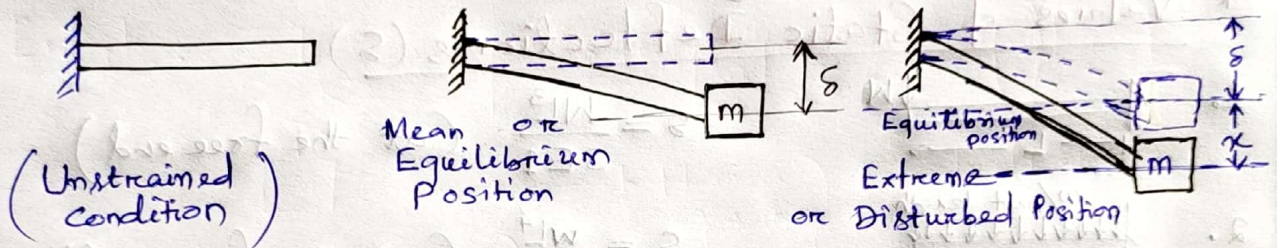 (Unstrained
Condition)
Mean or
Equilibrium
Position
m
δ
Equilibrium
position
Extreme
or Disturbed Position
m
δ
x